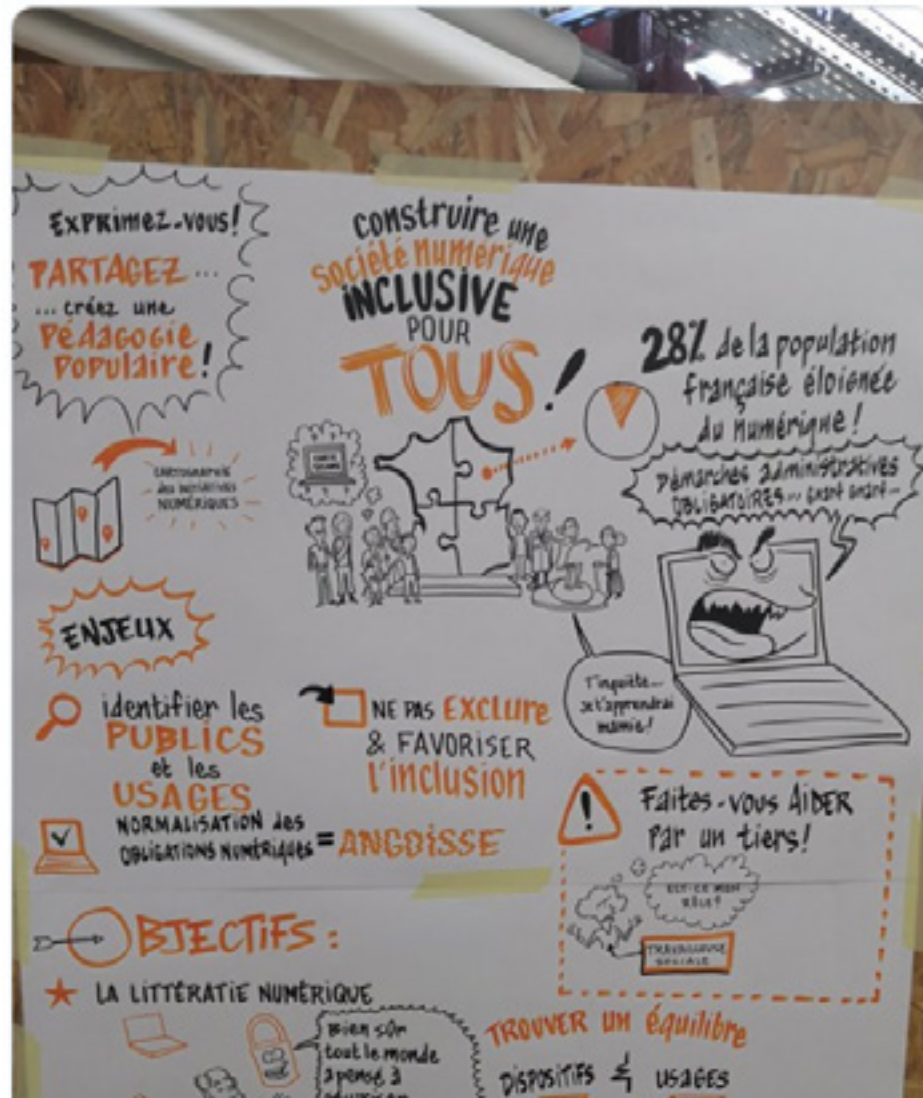 EXPRIMEZ-VOUS!
PARTAGEZ...
... créez une
PÉDAGOGIE
POPULAIRE!
CARTOGRAPHIE
des INITIATIVES
NUMÉRIQUES
construire une
société numérique
INCLUSIVE
POUR
TOUS!
28% de la population
française éloignée
du numérique!
Démarches administratives
OBLIGATOIRES... GNARF GNARF...
T'inquiète...
Je t'apprendrai
mamie!
ENJEUX
identifier les
PUBLICS
et les
USAGES
NE PAS EXCLURE
& FAVORISER
l'inclusion
NORMALISATION des
OBLIGATIONS NUMÉRIQUES = ANGOISSE
Faites-vous AIDER
Par un tiers!
EST-CE MON
RÔLE?
TRAVAILLEUSE
SOCIALE
OBJECTIFS:
LA LITTÉRATIE NUMÉRIQUE
Bien sûr
tout le monde
a pensé à
TROUVER UN équilibre
DISPOSITIFS & USAGES